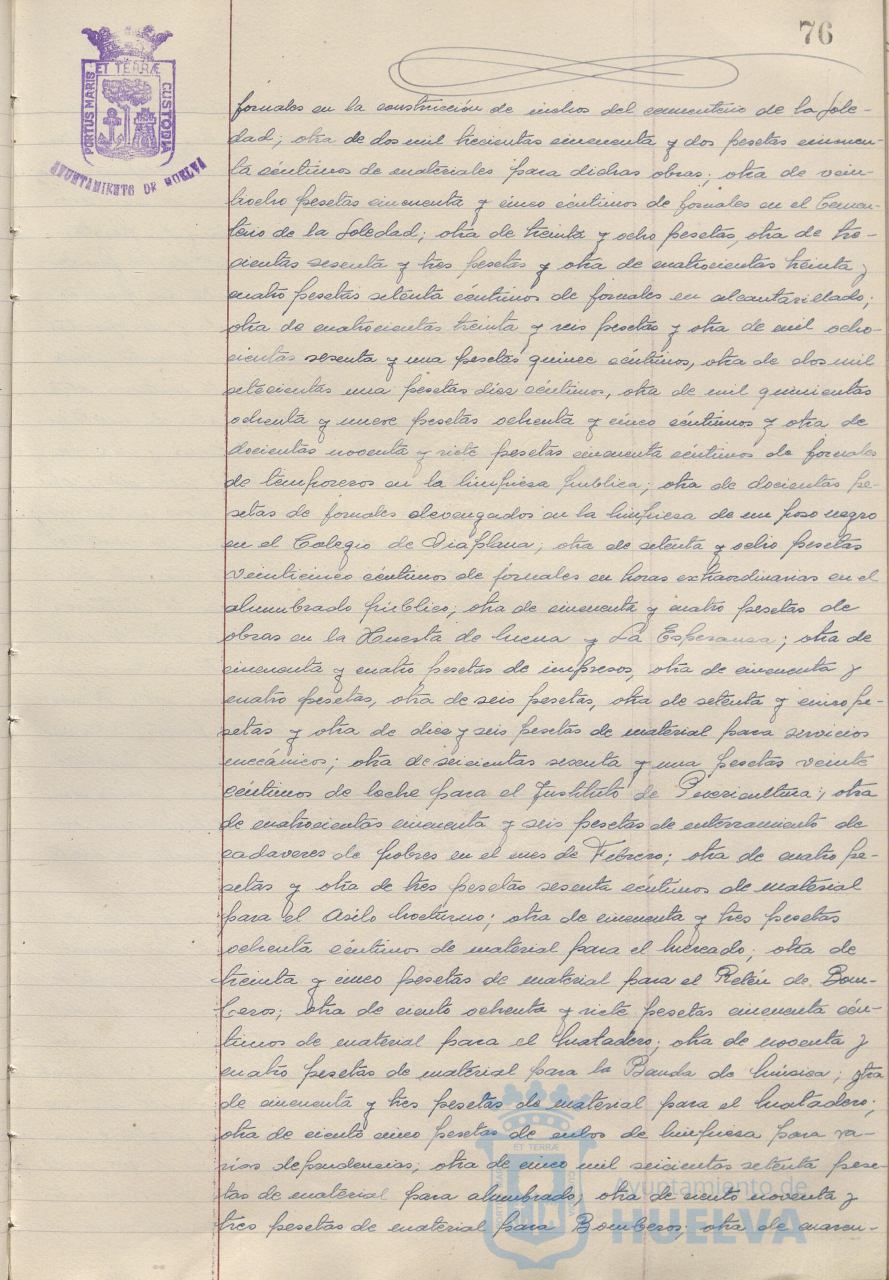 76
ET TERRÆ
PORTUS MARIS
CUSTODIA
AYUNTAMIENTO DE HUELVA
jornales en la construcción de nichos del cementerio de la Sole-
dad; otra de dos mil trecientas cincuenta y dos pesetas cincuen-
ta céntimos de materiales para dichas obras; otra de vein-
tiocho pesetas cincuenta y cinco céntimos de jornales en el Cemen-
terio de la Soledad; otra de treinta y ocho pesetas, otra de tre-
cientas sesenta y tres pesetas y otra de cuatrocientas treinta y
cuatro pesetas setenta céntimos de jornales en alcantarillado;
otra de cuatrocientas treinta y seis pesetas y otra de mil ocho-
cientas sesenta y una pesetas quince céntimos, otra de dos mil
setecientas una pesetas diez céntimos, otra de mil quinientas
ochenta y nueve pesetas ochenta y cinco céntimos y otra de
docientas noventa y siete pesetas cincuenta céntimos de jornales
de temporeros en la limpiesa publica; otra de docientas pe-
setas de jornales devengados en la limpiesa de un poso negro
en el Colegio de Viaplana; otra de setenta y ocho pesetas
veinticinco céntimos de jornales en horas extraordinarias en el
alumbrado público; otra de cincuenta y cuatro pesetas de
obras en la Huerta de Mena y La Esperansa; otra de
cincuenta y cuatro pesetas de impresos, otra de cincuenta y
cuatro pesetas, otra de seis pesetas, otra de setenta y cinco pe-
setas y otra de dies y seis pesetas de material para servicios
mecánicos; otra de seicientas sesenta y una pesetas veinte
céntimos de leche para el Instituto de Puericultura; otra
de cuatrocientas cincuenta y seis pesetas de enterramiento de
cadaveres de pobres en el mes de Febrero; otra de cuatro pe-
setas y otra de tres pesetas sesenta céntimos de material
para el Asilo Nocturno; otra de cincuenta y tres pesetas
ochenta céntimos de material para el Mercado; otra de
treinta y cinco pesetas de material para el Retén de Bom-
beros; otra de ciento ochenta y siete pesetas cincuenta cén-
timos de material para el Matadero; otra de noventa y
cuatro pesetas de material para la Banda de Música; otra
de cincuenta y tres pesetas de material para el Matadero;
otra de ciento cinco pesetas de cubos de limpiesa para va-
rias dependensias; otra de cinco mil seicientas setenta pese-
tas de material para alumbrado; otra de ciento noventa y
tres pesetas de material para Bomberos; otra de cuaren-
Ayuntamiento de
HUELVA